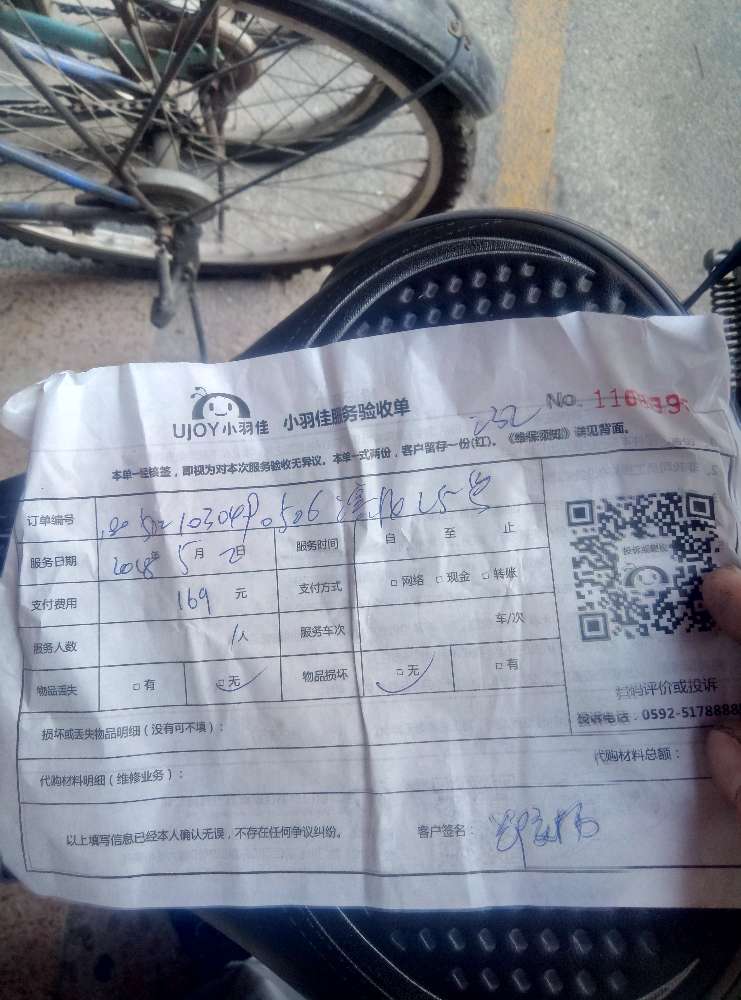 UJOY小羽佳 小羽佳服务验收单 No. 
本单一经核签，即视为对本次服务验收无异议。本单一式两份，客户留存一份(红)。《维保须知》详见背面。
订单编号
服务日期 2018年 5月 2日 服务时间 自 至 止
支付费用 169 元 支付方式 □网络 □现金 □转账
服务人数 1人 服务车次 车/次
物品丢失 □有 □无 物品损坏 □无 □有
扫码评价或投诉
投诉电话：0592-5178888
损坏或丢失物品明细（没有可不填）：
代购材料明细（维修业务）： 代购材料总额：
以上填写信息已经本人确认无误，不存在任何争议纠纷。 客户签名：